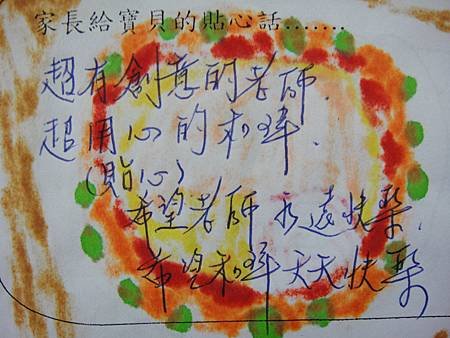 家長給寶貝的貼心話.......
超有創意的老師.
超用心的和瑋.
(貼心)
希望老師永遠快樂.
希望和瑋天天快樂